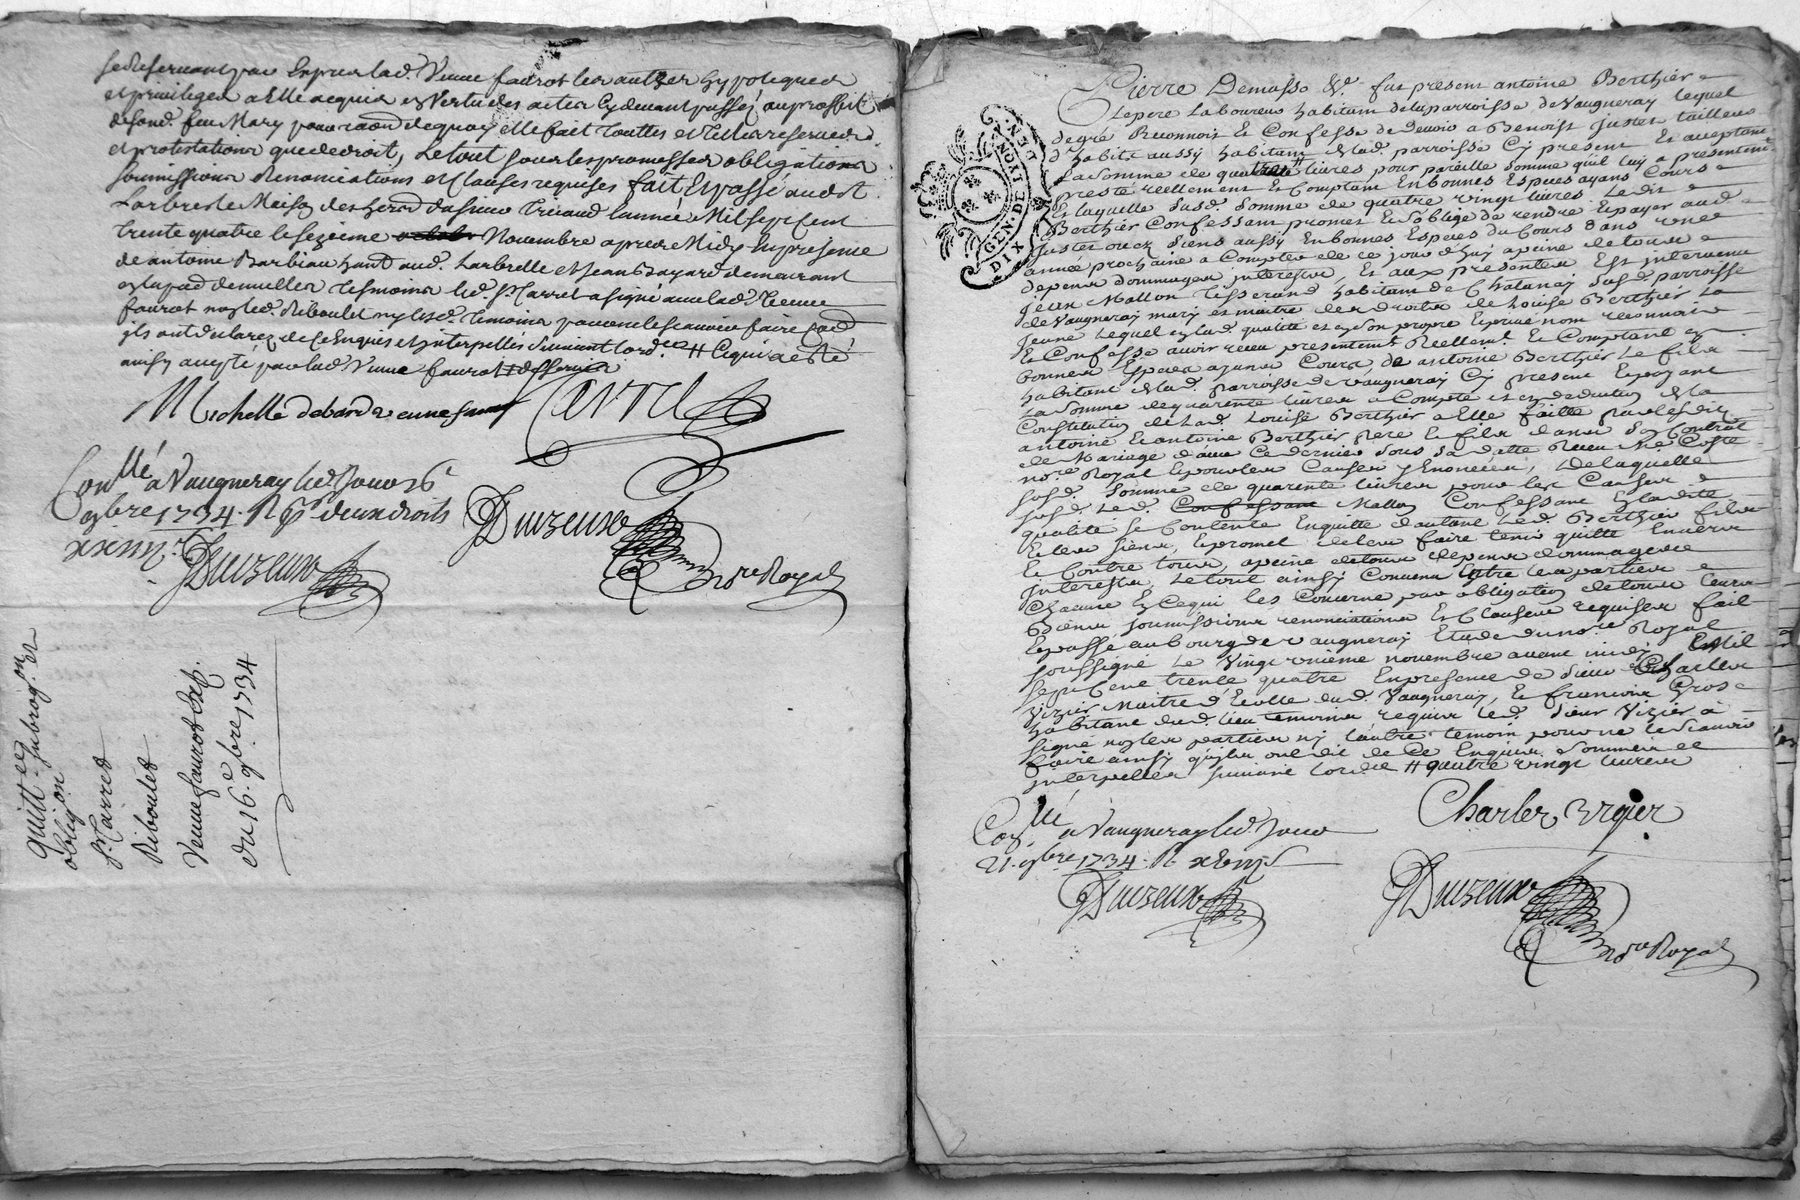 se Reservant par Expres lad. Veuve faurot les autres hypoteques
et privileges a Elle acquis en Vertu des actes Cy devant passés au proffit
dud. feu Mary pour raison de quoy elle fait touttes et telles reserves
et protestations que de droit, Le tout sous les promesses obligations
soumissions Renonciations et Clauses requises fait Et passé aud.
Larbresle Maison des hers du sieur Lannée Mil sept Cent
trente quatre le sezieme Novembre apres Midy En presence
de antoine Barbiau hant aud. Larbrelle et Jean Bayard demeurant
temoins led. Sr. Carret a signé avec lad. Veuve
faurot non led. Riboulet ny lesd. temoins pour ne le scavoir faire
ils ont declarez de ce Enquis et Interpellés suivant lord.ce # Ce qui a esté
ainsy accepté par lad. Veuve faurot
Michelle debard veuve faurot Carret
Con.llé a Vaugneray led. Jour 16e
9bre 1734. R deux droits
Duvzeux
Duvzeux
no.re Royal
quitt.ce subrog.on et
oblig.on
Sr. Carret
Riboulet
Veuve faurot
du 16.e 9bre 1734
GEN. DE LYON
DIX DEN
Pierre Demasso &c. fut present antoine Berthier
Le pere Laboureur habitant de la parroisse de Vaugneray lequel
de gré Reconnoit Et Confesse de devoir a Benoist Juttet tailleur
d'habits aussy habitant de lad. parroisse Cy present Et acceptant
La Somme de quatre # livres pour pareille Somme qu'il luy a presentem.t
presté réellement Et Comptant En bonnes Especes ayans Cours
Et laquelle susd. Somme de quatre vingt livres Ledit
Berthier Confessant promet Et s'oblige de rendre Et payer aud.
Juttet ou ez siens aussy En bonnes Especes du Cours dans une
année prochaine a Compter de ce jour d'huy a peine de tous
depens dommages interests, Et aux presentes Est intervenu
Jean Mallon tisserand habitant de Chatanay susd. parroisse
de Vaugneray mary et maitre des droits de Louise Berthier La
Jeune Lequel en lad. qualité et en Son propre Et privé nom reconnoit
Et Confesse avoir receu presentem.t Reellem.t Et Comptant en
bonnes Especes ayans Cours, de antoine Berthier Le fils
habitant de lad. parroisse de Vaugneray Cy present Et payant
La Somme de quarente livres a Compte et en deduction de la
Constitution de Lad. Louise Berthier a Elle faitte par lesdits
antoine Et antoine Berthier pere Et fils dans Son Contrat
de Mariage d'avec Ce dernier sous Sa datte Receu M.e Coste
no.re Royal Et pour les Causes y Enoncées, De laquelle
susd. Somme de quarente livres pour les Causes
susd. Led. Confessant Mallon Confessant En ladite
qualité se Contente En quitte d'autant Led. Berthier fils
Et les siens, Et promet de les faire tenir quitte Envers
Et Contre tous, a peine de tous depens dommages
interests, Le tout ainsy Convenu Entre les parties
Chacune En Ce qui les Concerne par obligation de tous leurs
Biens soumissions renonciations Et Clauses requises fait
Et passé au bourg de Vaugneray Etude du no.re Royal
soussigné Le vingt unième novembre avant midy Mil
sept Cent trente quatre En presence de sieur Charles
Vizier Maitre d'Ecolle dud. Vaugneray, Et francois Gros
habitant dud. lieu temoins requis led. sieur Vizier a
signé non les parties ny l'autre temoin pour ne le scavoir
faire ainsy qu'ils ont dit de Ce Enquis Sommés et
interpellés suivant lord.ce # quatre vingt livres
Charles Vizier
Con.llé a Vaugneray led. Jour
21. 9bre 1734. R
Duvzeux
Duvzeux
no.re Royal